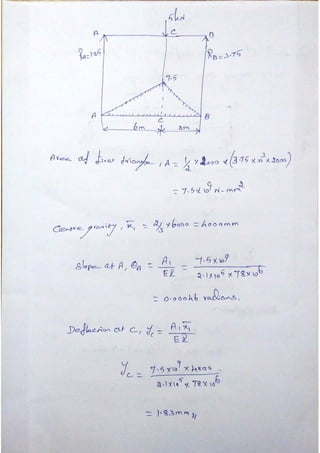 5kN
A C B
RA=1.25 RB=3.75
7.5
A C B
6m 2m
Area of first triangle, A = 1/2 × 2000 × (3.75 × 10³ × 2000)
= 7.5 × 10⁹ N-mm²
Centre gravity, x̄₁ = 2/3 × 6000 = 4000mm
Slope at A, θA = A₁/EI = 7.5×10⁹ / 2.1×10⁵ × 78×10⁶
= 0.00046 radians.
Deflection at C, yc = A₁x̄₁/EI
yc = 7.5×10⁹ × 4000 / 2.1×10⁵ × 78×10⁶
= 1.83mm //